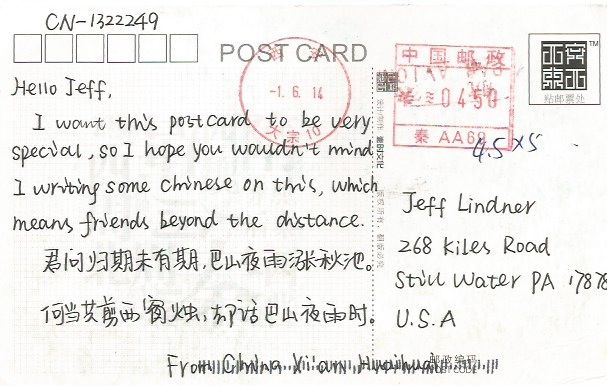 CN-1322249
POST CARD
中国邮政
0450
秦 AA68
-1.6.14
大宗10
TM
粘邮票处
Hello Jeff,
I want this postcard to be very
special, so I hope you wouldn't mind
I writing some chinese on this, which
means friends beyond the distance.
君问归期未有期,巴山夜雨涨秋池。
何当共剪西窗烛,却话巴山夜雨时。
From China Xi'an Huaihua
4.5 x 5
Jeff Lindner
268 Kiles Road
Still Water PA 17878
U.S.A
邮政编码
POST CODE